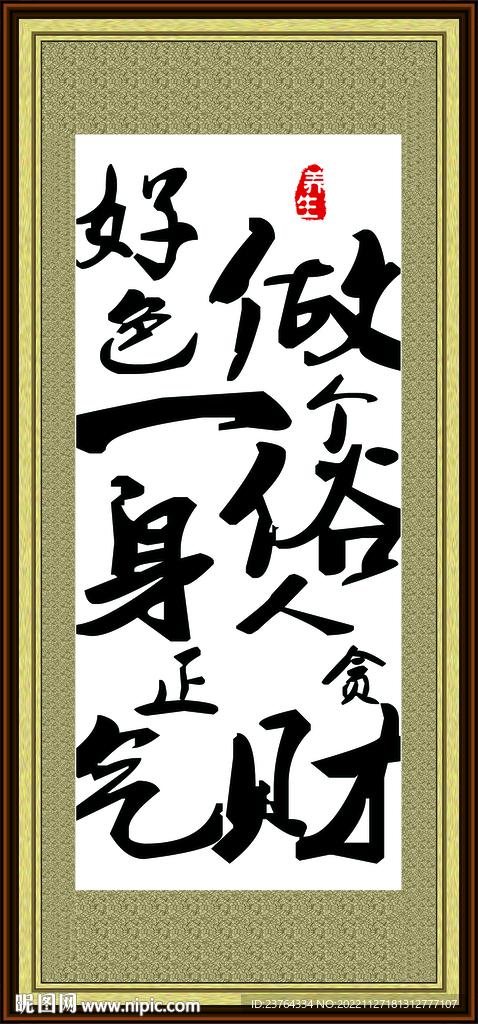 养生
做个俗人贪财
好色一身正气
昵图网 www.nipic.com
ID:23764334 NO:20221127181312777107